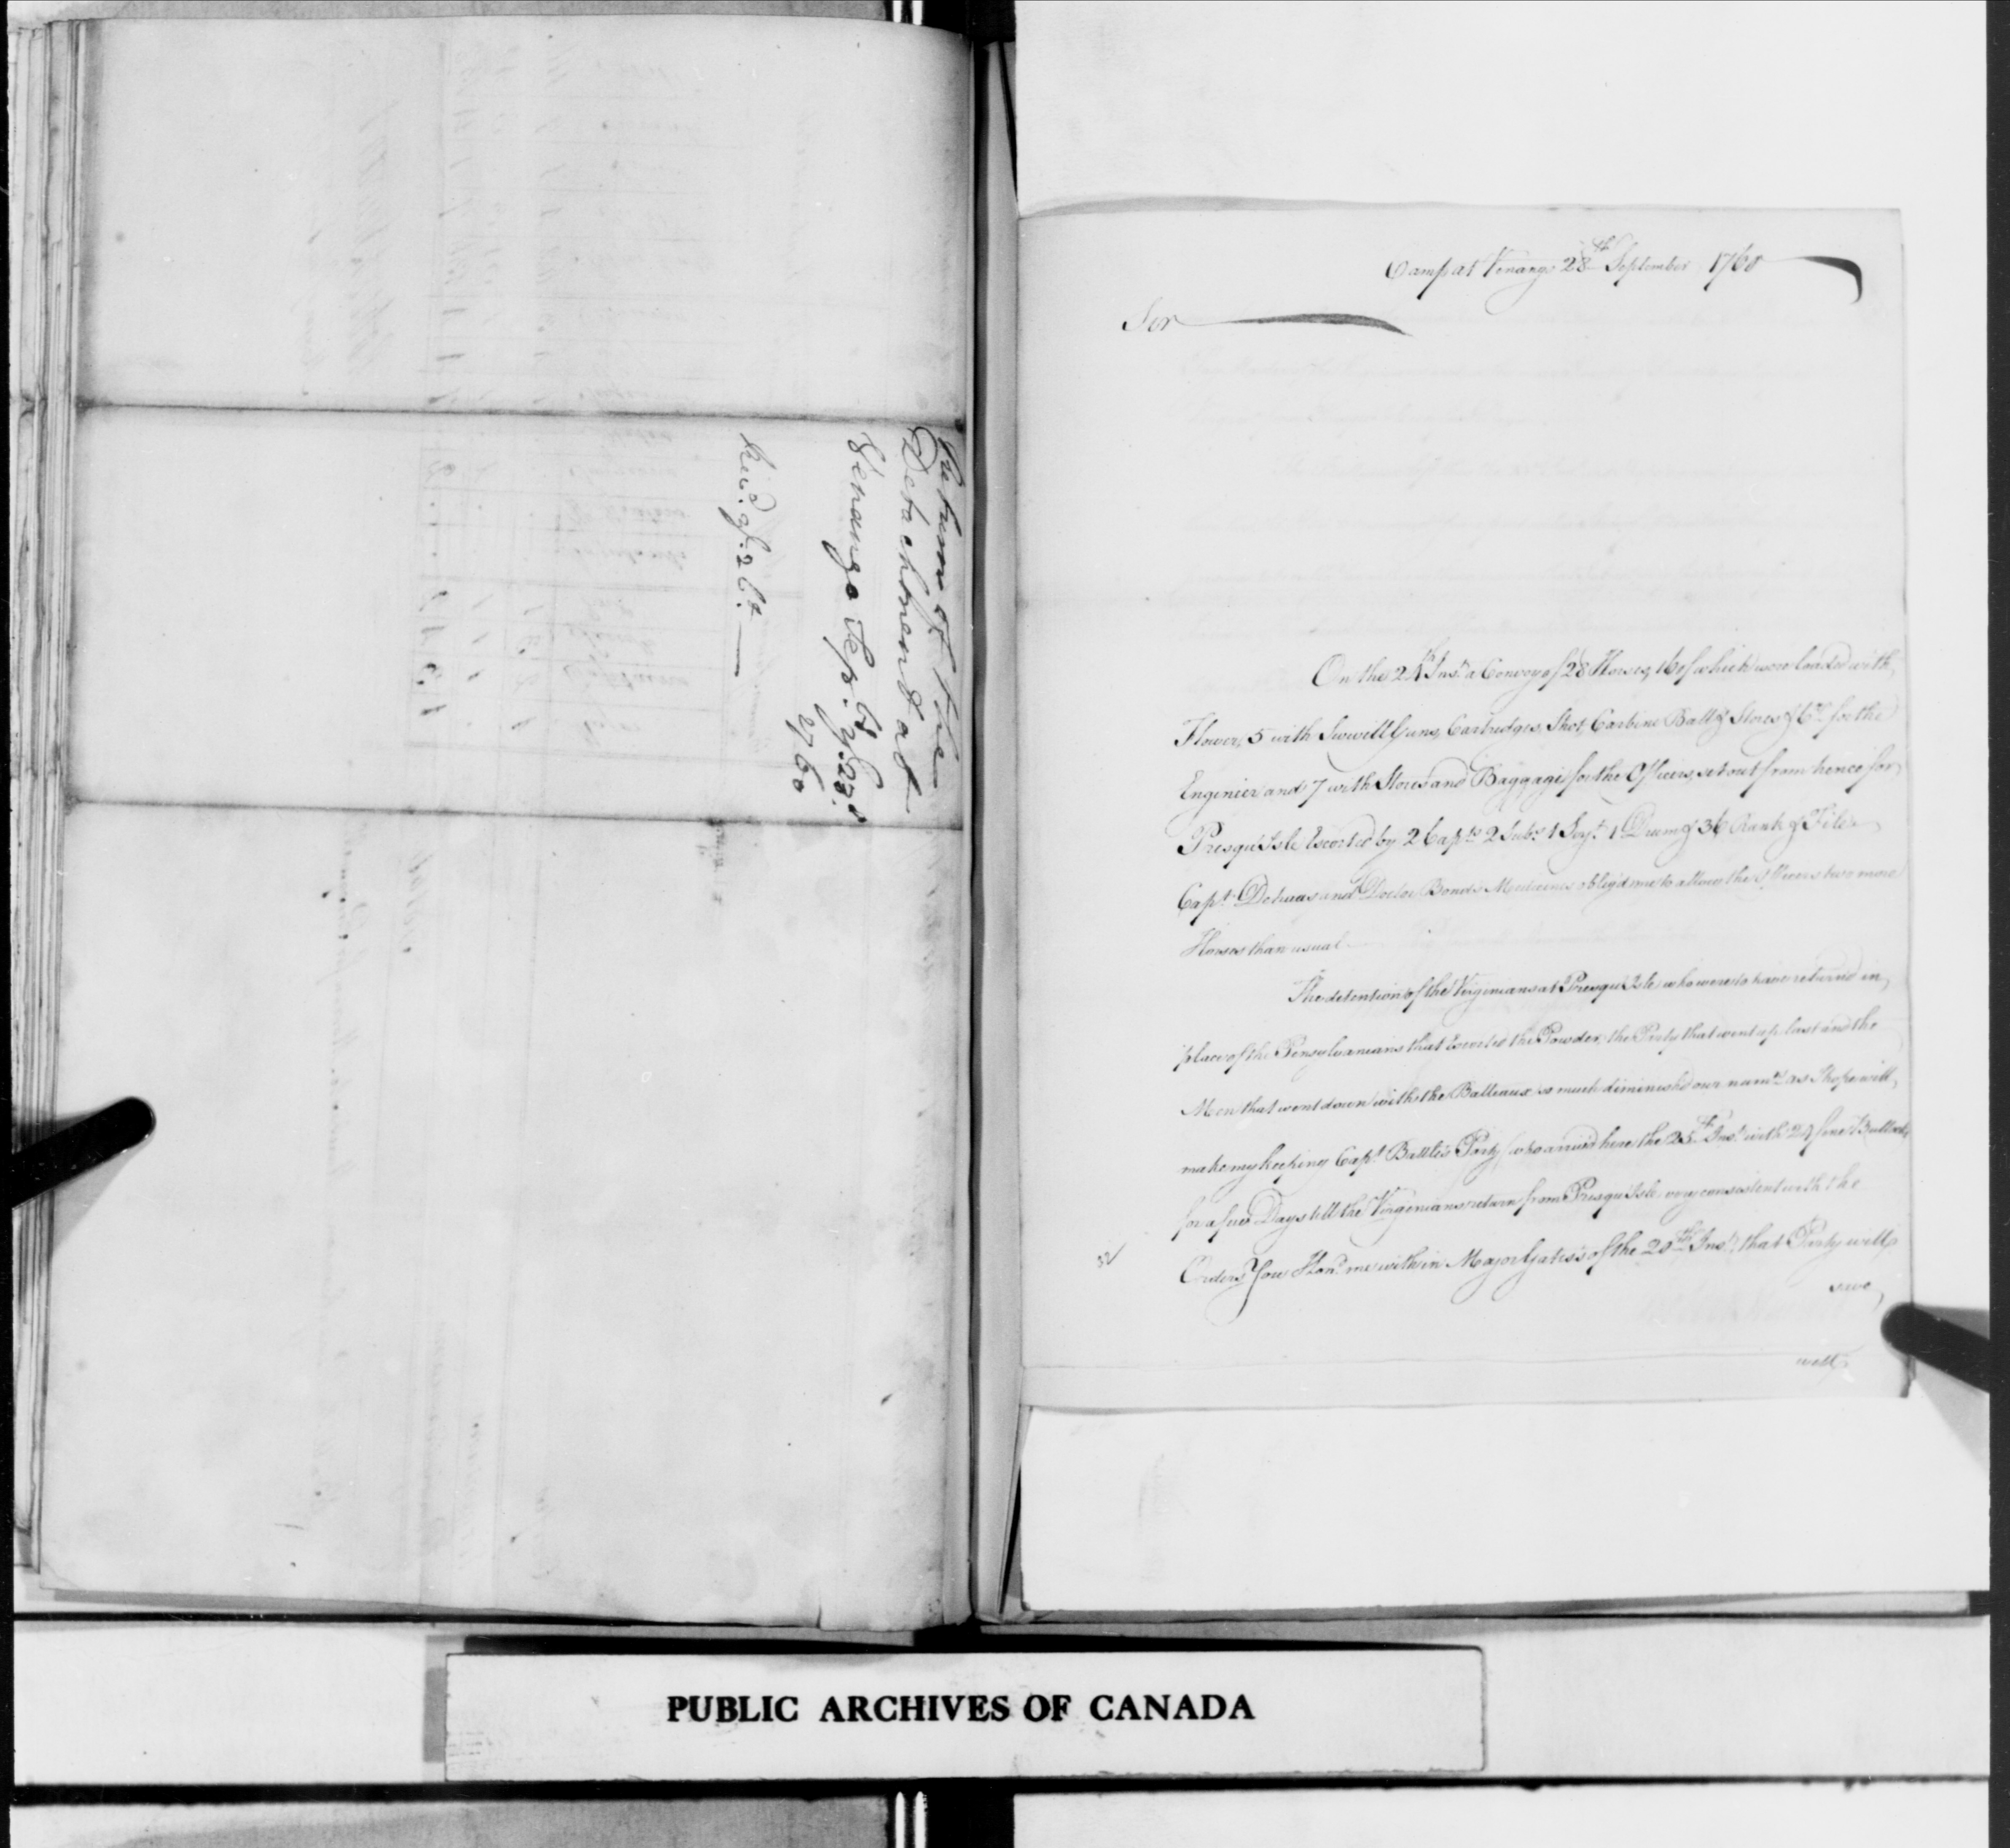 Return of the
Detachment at
Venango Sepr. 23d
1760
Recd. ye. 26th
Camp at Venango 28th September 1760
Sir
On the 24th Inst. a Convoy of 28 Horses, 16 of which were loaded with
Flower, 5 with Swivell Guns, Cartridges, Shot, Carbine Ball & Stores &ca. for the
Engenier and 7 with Stores and Baggage for the Officers, set out from hence for
Presqu'Isle Escorted by 2 Capts. 2 Subs. 1 Sergt. 1 Drum & 36 Rank & File
Capt. and Doctor Bonds Medicines oblig'd me to allow the Officers two more
Horses than usual
The detention of the Virginians at Presqu'Isle who were to have returned in
place of the Pensylvanians that Escorted the Powder, the Party that went up last and the
Men that went down with the Batteaux so much diminish'd our numr. as I hope will
make my keeping Capt. Party (who arriv'd here the 25th Inst. with 24 fine Bullocks
for a few Days till the Virginians return from Presqu'Isle very consistent with the
Orders You Hond. me with in Major Gates's of the 20th Inst. that Party will